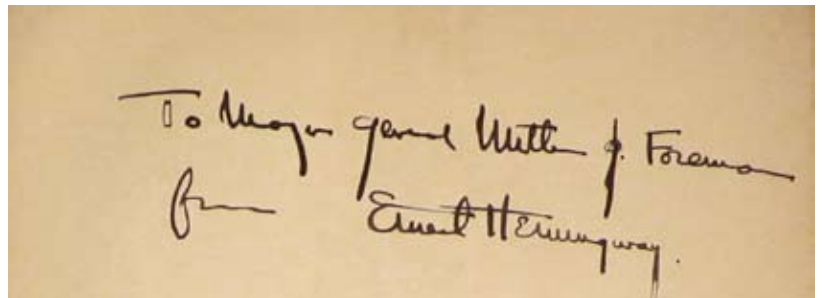 To Major General Milton J. Foreman
from Ernest Hemingway.